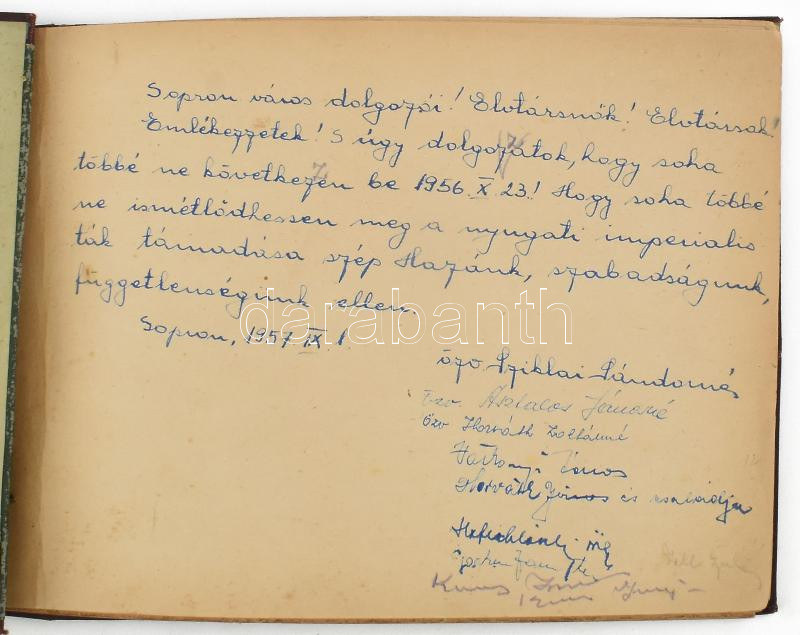 Sopron város dolgozói! Elvtársnők! Elvtársak!
Emlékezzetek! S úgy dolgozatok, hogy soha
többé ne következen be 1956. X. 23! Hogy soha többé
ne ismétlődhessen meg a nyugati imperialis
ták támadása szép Hazánk, szabadságunk,
függetlenségünk ellen.
Sopron, 1957 IX. 1.
darabanth
özv. Sziklai Sándorné
Özv. Asztalos Jánosné
Özv Horváth Zoltánné
János
Horváth János és családja